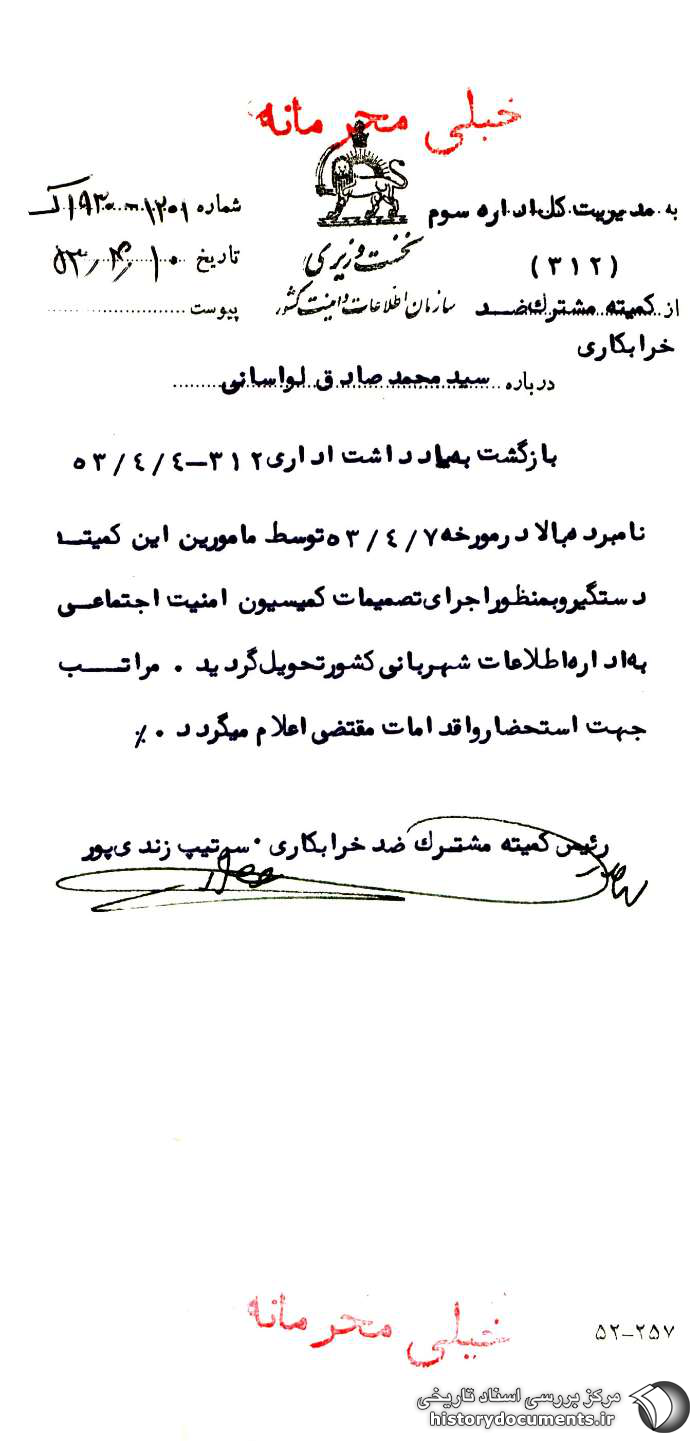 خیلی محرمانه
به مدیریت کل اداره سوم
(۳۱۲)
از کمیته مشترك ضد
خرابکاری
نخست وزیری
سازمان اطلاعات و امنیت کشور
شماره
تاریخ ۱۰ / ۴ / ۵۳
پیوست
درباره سید محمد صادق لواسانی
بازگشت به یادداشت اداری ۳۱۲–۵۳/٤/٤
نامبرده بالا در مورخه ۵۳/٤/۷ توسط مامورین این کمیتـه
دستگیر و بمنظور اجرای تصمیمات کمیسیون امنیت اجتماعـی
به اداره اطلاعات شهربانی کشور تحویل گردید ۰ مراتـــب
جهت استحضار و اقدامات مقتضی اعلام میگردد ۰٪
رئیس کمیته مشترك ضد خرابکاری ۰ سرتیپ زندی‌پور
خیلی محرمانه
۵۲–۲۵۷
مرکز بررسی اسناد تاریخی
historydocuments.ir